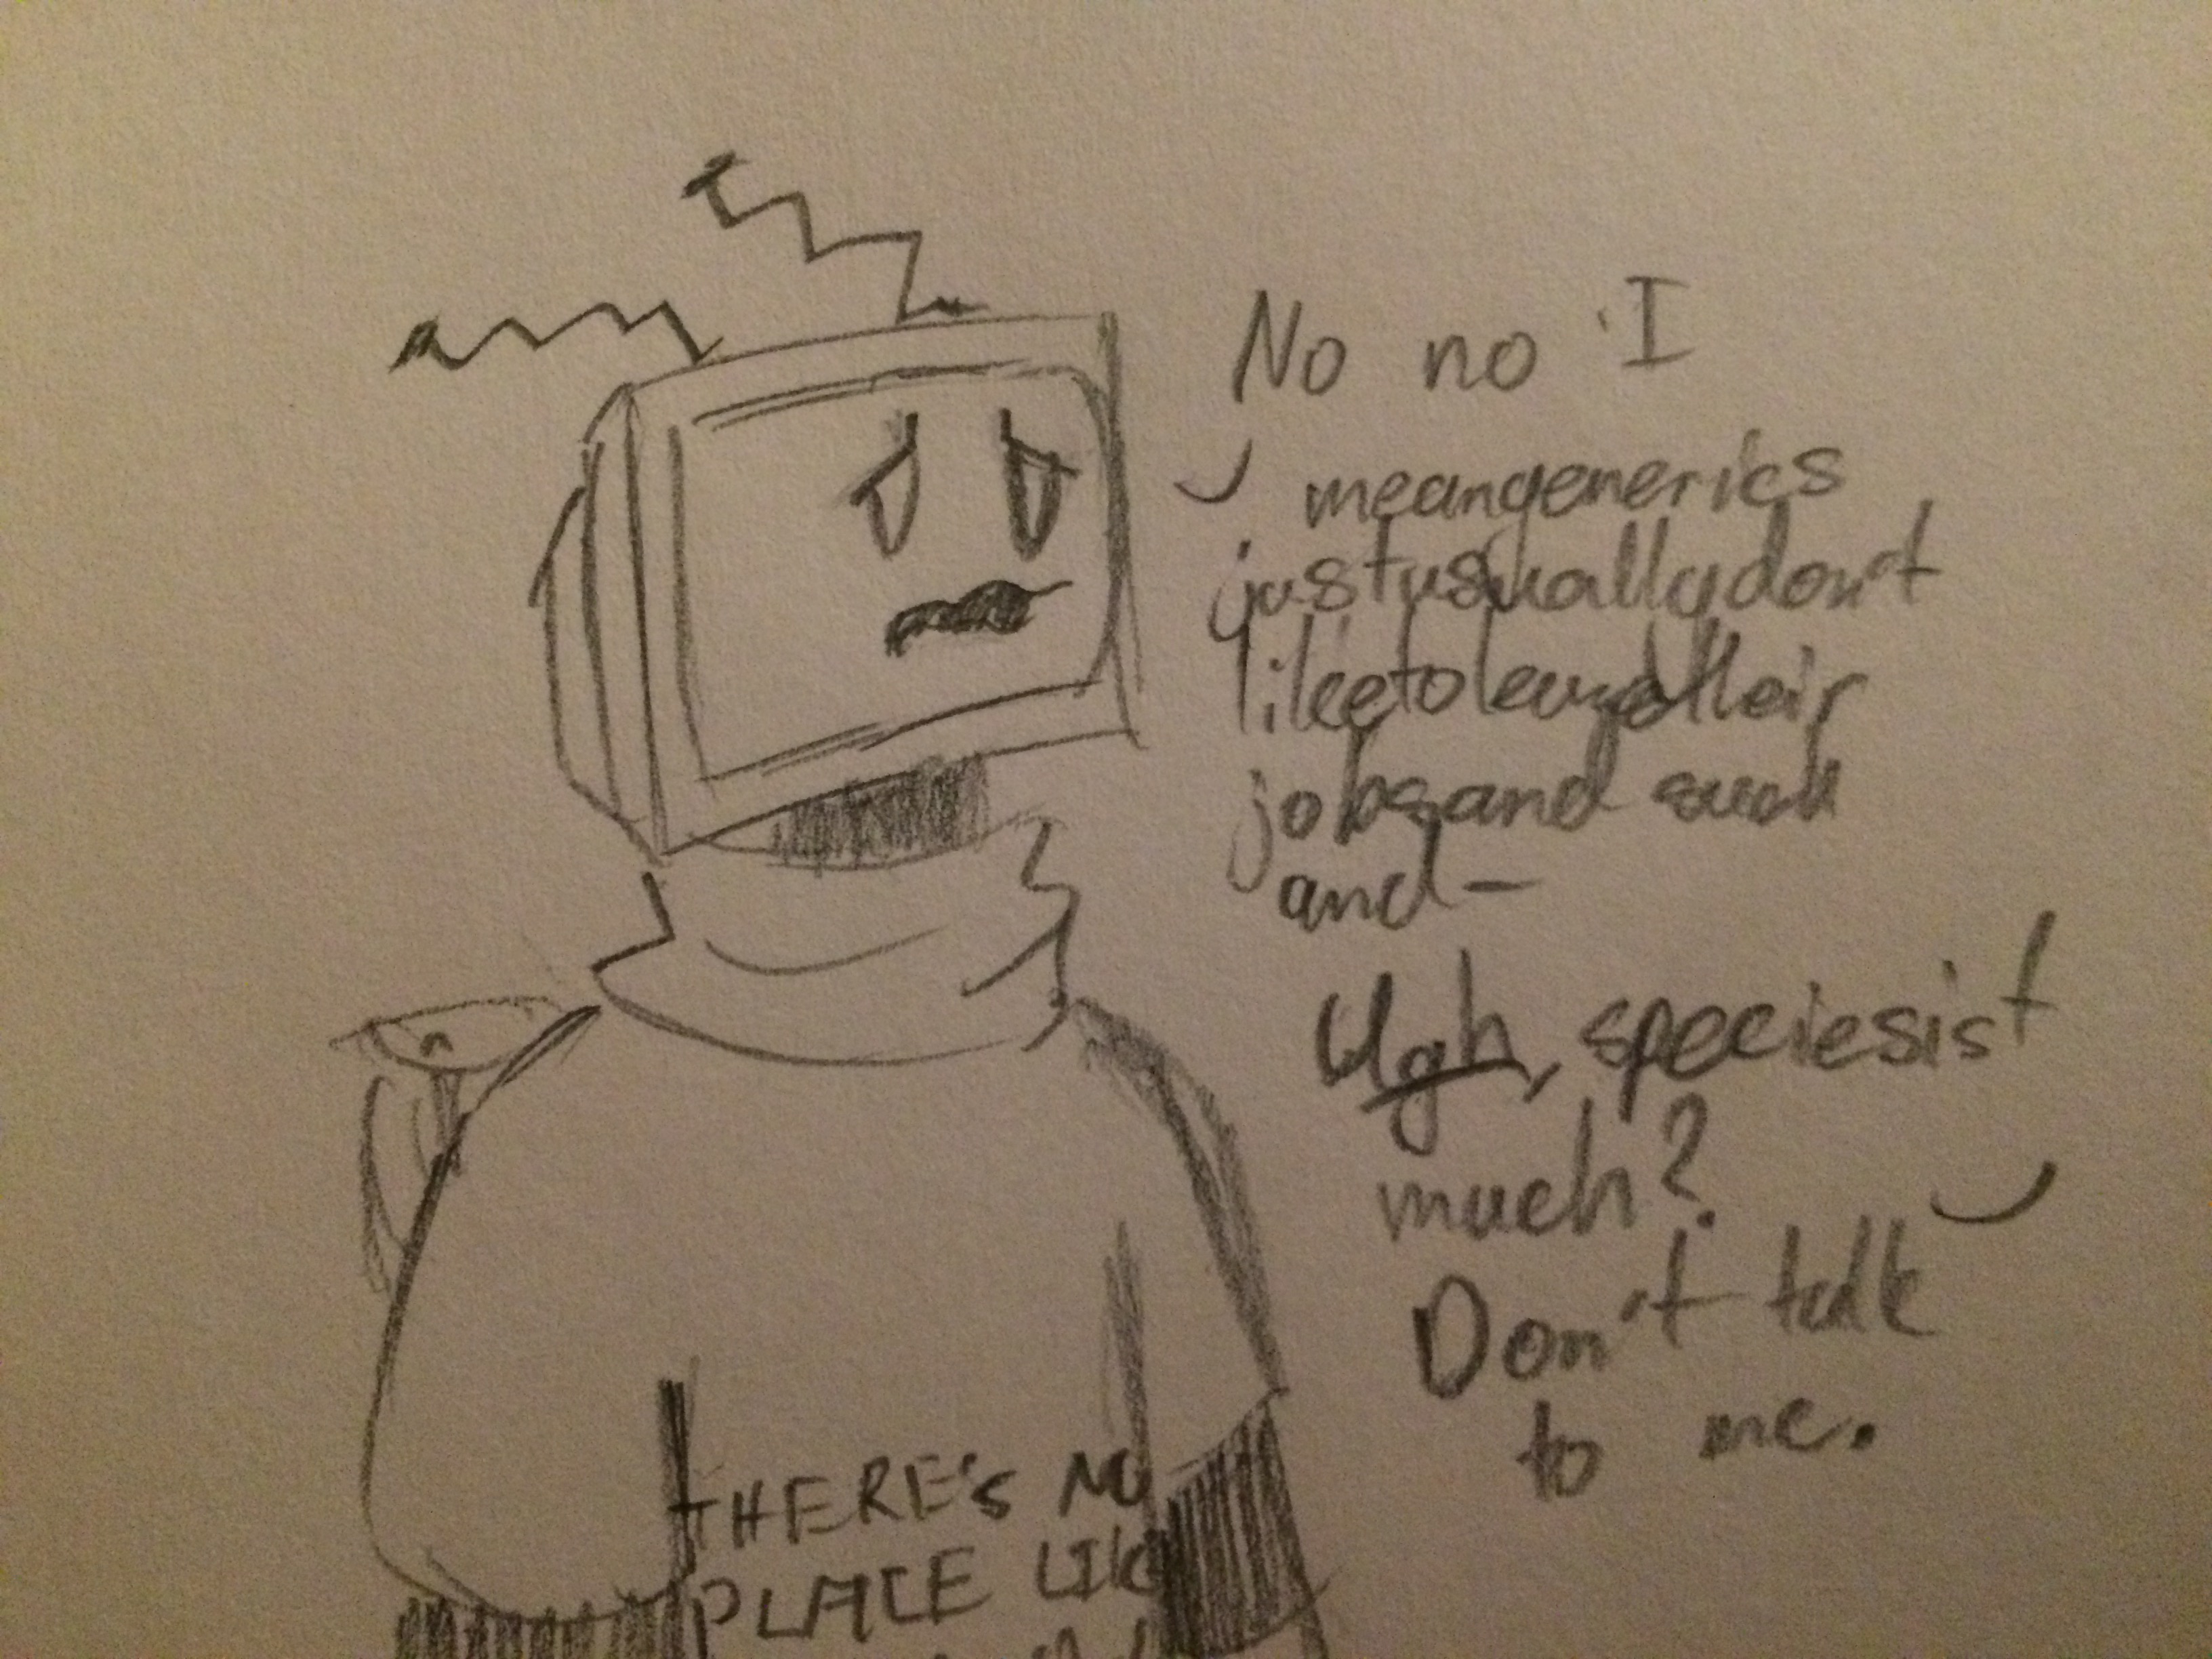 No no I
meangenerics
justusuallydon't
liketoleavetheir
jobsand such
and—
Ugh, speciesist
much?
Don't talk
to me.
THERE'S NO
PLACE LIKE